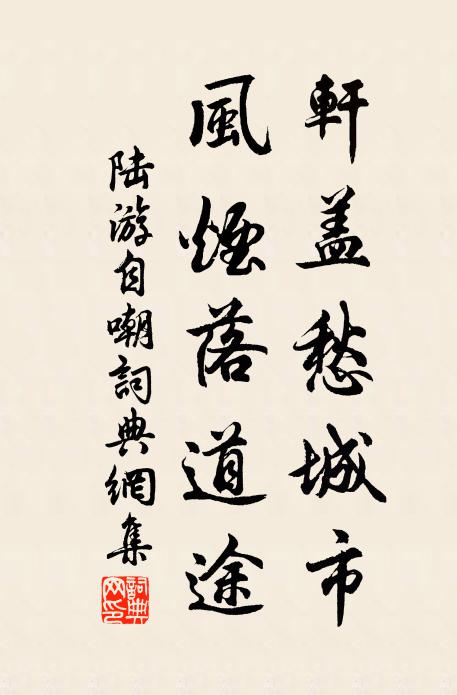 軒盖愁城市
風煙落道途
陆游自嘲詞典網集
詞典网印